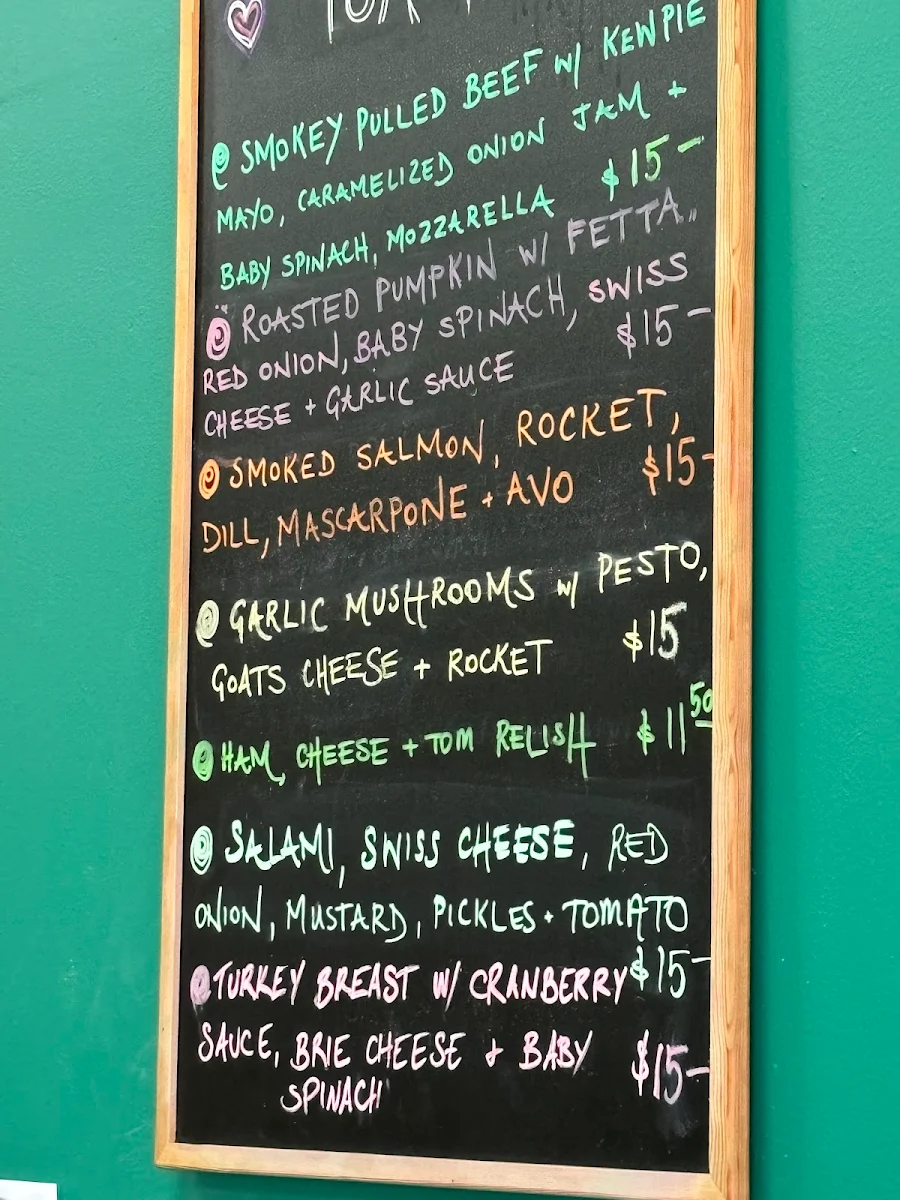 SMOKEY PULLED BEEF W/ KEWPIE
MAYO, CARAMELIZED ONION JAM +
BABY SPINACH, MOZZARELLA $15-
ROASTED PUMPKIN W/ FETTA,
RED ONION, BABY SPINACH, SWISS
CHEESE + GARLIC SAUCE $15-
SMOKED SALMON, ROCKET,
DILL, MASCARPONE + AVO $15-
GARLIC MUSHROOMS W/ PESTO,
GOATS CHEESE + ROCKET $15
HAM, CHEESE + TOM RELISH $11 50
SALAMI, SWISS CHEESE, RED
ONION, MUSTARD, PICKLES + TOMATO
$15-
TURKEY BREAST W/ CRANBERRY
SAUCE, BRIE CHEESE + BABY
SPINACH $15-